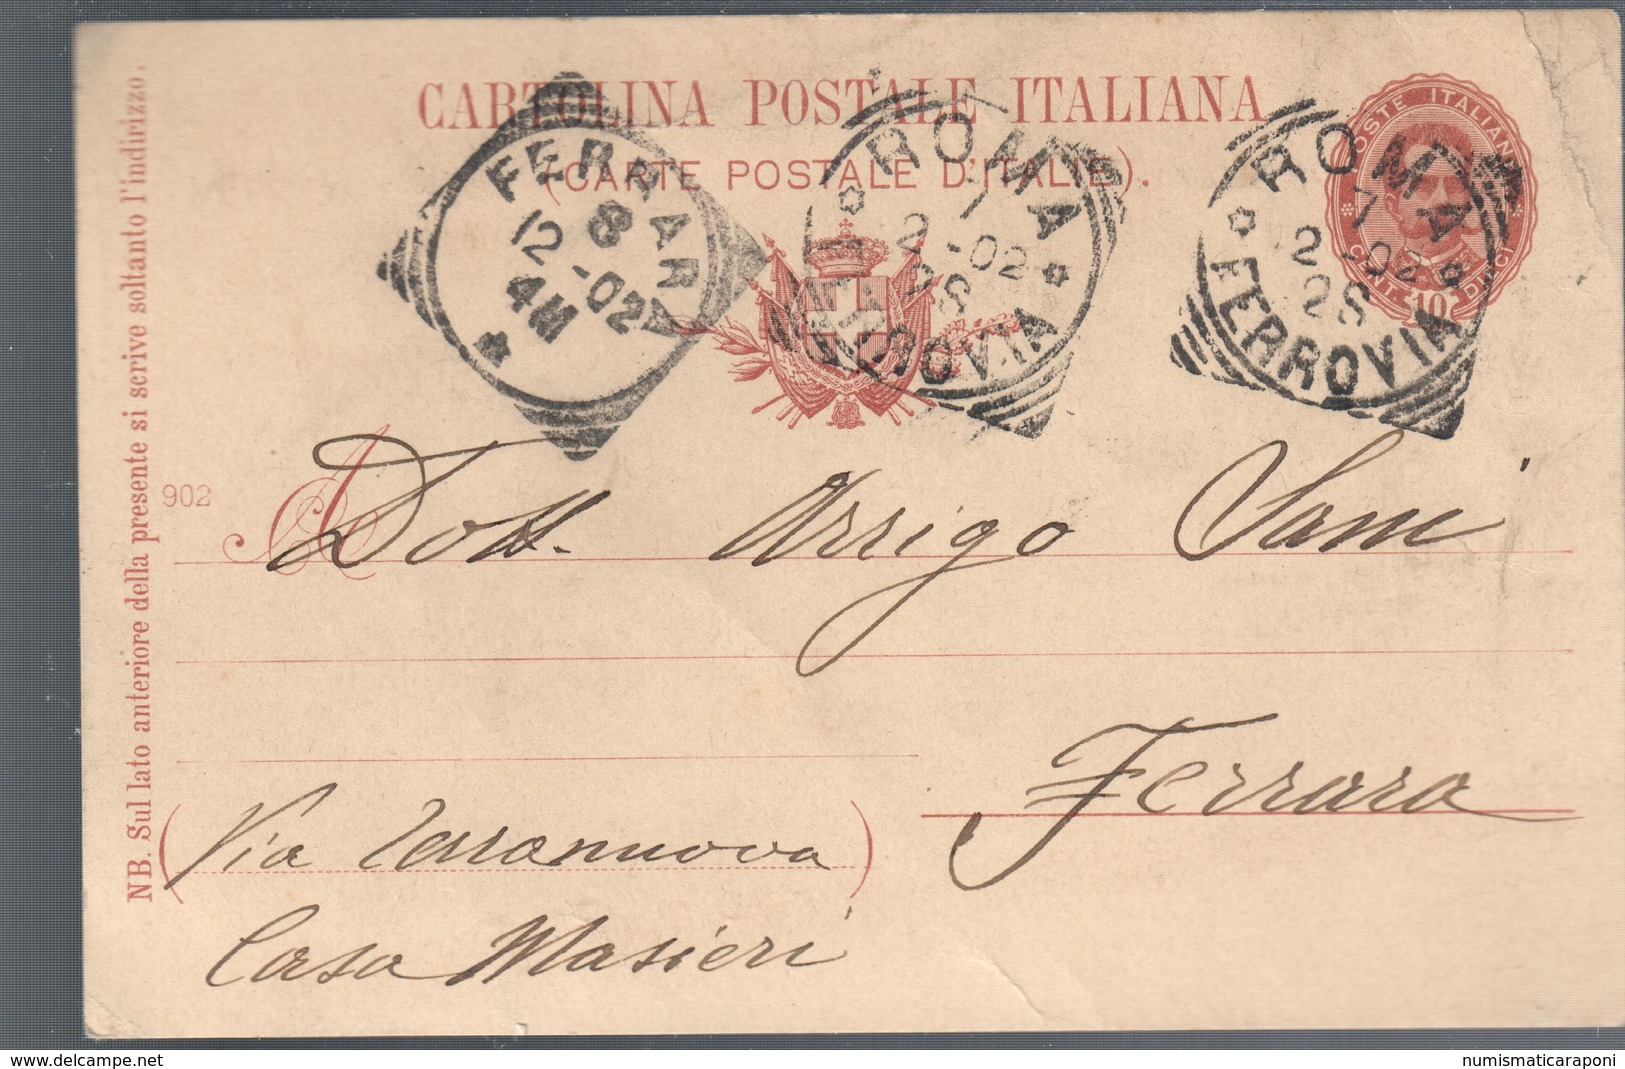 CARTOLINA POSTALE ITALIANA
(CARTE POSTALE D'ITALIE).
POSTE ITALIANE
CENT. 10 DIECI
FERRARA
8
12 -02
4M
ROMA
7
2 -02
28
FERROVIA
ROMA
7
2 -02
28
FERROVIA
NB. Sul lato anteriore della presente si scrive soltanto l'indirizzo.
902
A
Dott. Arrigo Sani
Ferrara
(Via Terranuova)
Casa Masieri
www.delcampe.net
numismaticaraponi